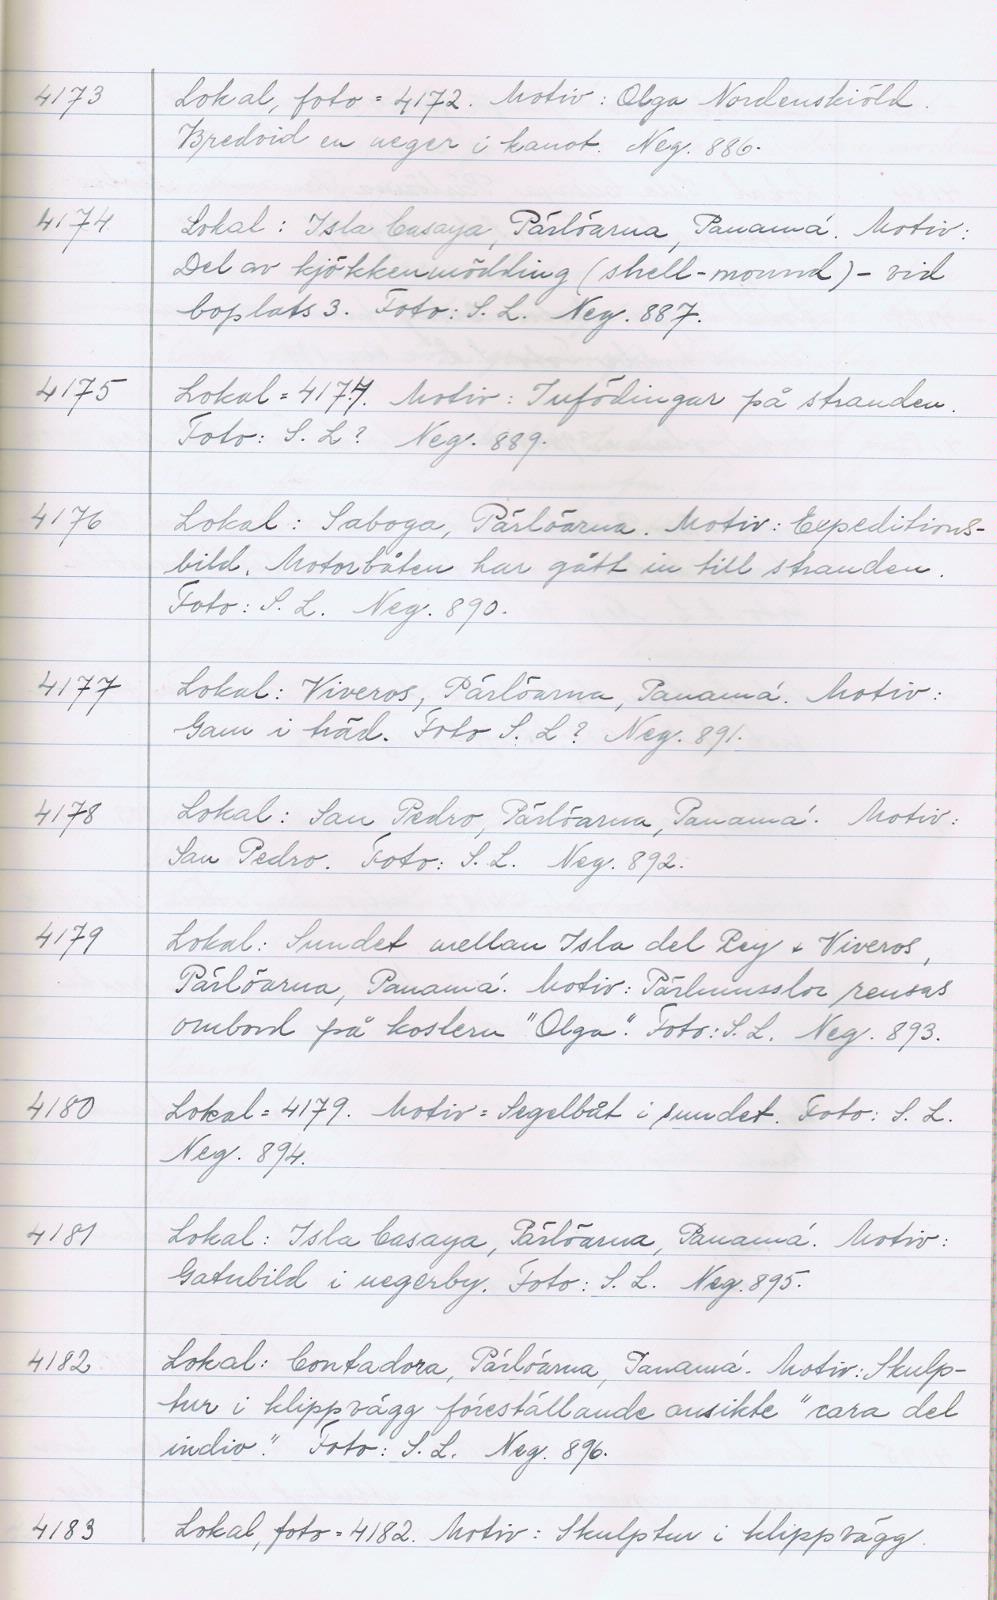 4173 Lokal, foto = 4172. Motiv: Olga Nordenskiöld.
Bredvid en neger i kanot. Neg. 886.
4174 Lokal: Isla Casaya, Pärlöarna, Panamá. Motiv:
Del av kjökkenmödding (shell-mound) - vid
boplats 3. Foto: S. L. Neg. 887.
4175 Lokal = 4174. Motiv: Infödingar på stranden.
Foto: S. L? Neg. 889.
4176 Lokal: Saboga, Pärlöarna. Motiv: Expeditions-
bild. Motorbåten har gått in till stranden.
Foto: S. L. Neg. 890.
4177 Lokal: Viveros, Pärlöarna, Panamá. Motiv:
Gam i träd. Foto S. L? Neg. 891.
4178 Lokal: San Pedro, Pärlöarna, Panamá. Motiv:
San Pedro. Foto: S. L. Neg. 892.
4179 Lokal: Sundet mellan Isla del Rey & Viveros,
Pärlöarna, Panamá. Motiv: Pärlmusslor rensas
ombord på kostern "Olga". Foto: S. L. Neg. 893.
4180 Lokal = 4179. Motiv = Segelbåt i sundet. Foto: S. L.
Neg. 894.
4181 Lokal: Isla Casaya, Pärlöarna, Panamá. Motiv:
Gatubild i negerby. Foto: S. L. Neg. 895.
4182 Lokal: Contadora, Pärlöarna, Panamá. Motiv: Skulp-
tur i klippvägg föreställande ansikte "cara del
indio." Foto: S. L. Neg. 896.
4183 Lokal, foto = 4182. Motiv: Skulptur i klippvägg.